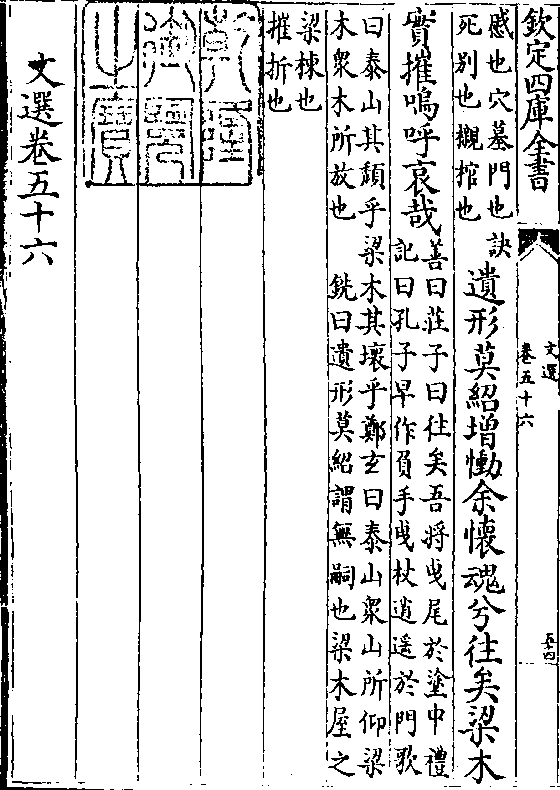 欽定四庫全書
文選
卷五十六
五十四
慼也穴墓門也訣
死別也櫬棺也
遺形莫紹增慟余懷魂兮往矣梁木
實摧嗚呼哀哉
善曰莊子曰往矣吾將曳尾於塗中禮
記曰孔子早作負手曳杖逍遥於門歌
曰泰山其頹乎梁木其壞乎鄭玄曰泰山衆山所仰梁
木衆木所放也 銑曰遺形莫紹謂無嗣也梁木屋之
梁棟也
摧折也
乾隆
御覽
之寶
文選卷五十六